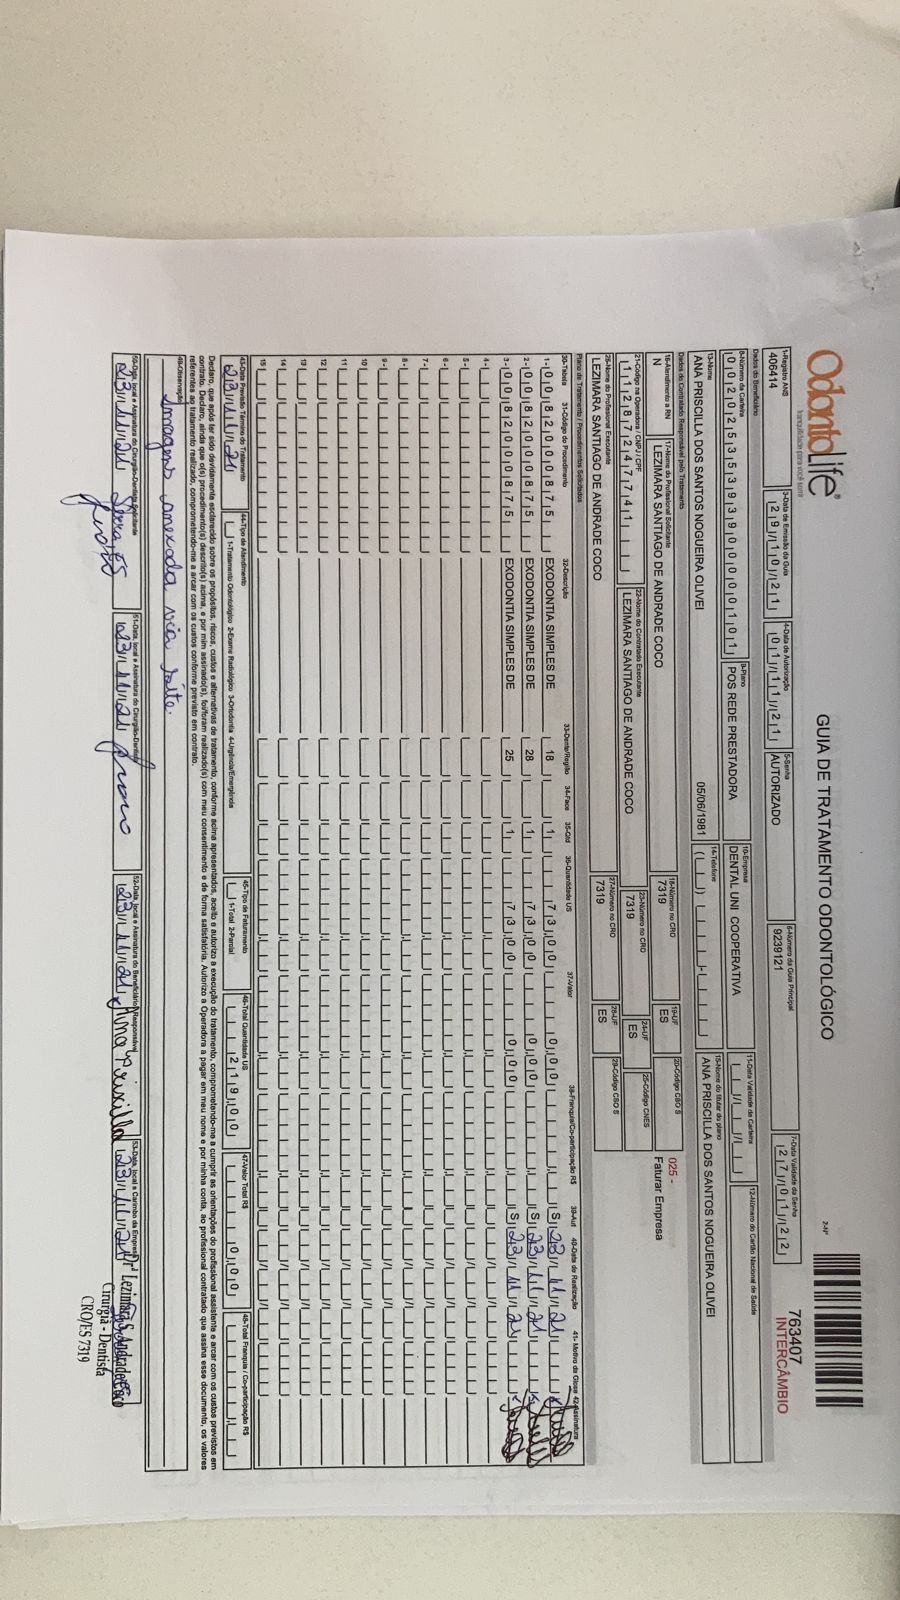 OdontoLife®
tranquilidade para você sorrir
GUIA DE TRATAMENTO ODONTOLÓGICO
2-Nº
763407
INTERCÂMBIO
1-Registro ANS
406414
3-Data de Emissão da Guia
29/10/21
4-Data de Autorização
01/11/21
5-Senha
AUTORIZADO
6-Número da Guia Principal
9239121
7-Data Validade da Senha
27/01/22
Dados do Beneficiário
8-Número da Carteira
00202535393900000101
9-Plano
POS REDE PRESTADORA
10-Empresa
DENTAL UNI COOPERATIVA
11-Data Validade da Carteira
12-Número do Cartão Nacional de Saúde
13-Nome
ANA PRISCILLA DOS SANTOS NOGUEIRA OLIVEI
05/06/1981
14-Telefone
15-Nome do titular do plano
ANA PRISCILLA DOS SANTOS NOGUEIRA OLIVEI
Dados do Contratado Responsável pelo Tratamento
16-Atendimento a RN
N
17-Nome do Profissional Solicitante
LEZIMARA SANTIAGO DE ANDRADE COCO
18-Número no CRO
7319
19-UF
ES
20-Código CBO S
025 -
Faturar Empresa
21-Código na Operadora / CNPJ / CPF
11287247741
22-Nome do Contratado Executante
LEZIMARA SANTIAGO DE ANDRADE COCO
23-Número no CRO
7319
24-UF
ES
25-Código CNES
26-Nome do Profissional Executante
LEZIMARA SANTIAGO DE ANDRADE COCO
27-Número no CRO
7319
28-UF
ES
29-Código CBO S
Plano de Tratamento / Procedimentos Solicitados
30-Tabela 31-Código do Procedimento 32-Descrição 33-Dente/Região 34-Face 35-Qtd 36-Quantidade US 37-Valor 38-Franquia/Co-participação R$ 39-Aut 40-Data de Realização 41- Motivo da Glosa 42-Assinatura
1- 00 82000875 EXODONTIA SIMPLES DE 18 1 73,00 0,00 S 23/11/21
2- 00 82000875 EXODONTIA SIMPLES DE 28 1 73,00 0,00 S 23/11/21
3- 00 82000875 EXODONTIA SIMPLES DE 25 1 73,00 0,00 S 23/11/21
4-
5-
6-
7-
8-
9-
10
11
12
13
14
15
43-Data Previsão Término do Tratamento
23/11/21
44-Tipo de Atendimento
1-Tratamento Odontológico 2-Exame Radiológico 3-Ortodontia 4-Urgência/Emergência
45-Tipo de Faturamento
1-Total 2-Parcial
46-Total Quantidade US
219,00
47-Valor Total R$
0,00
48-Total Franquia / Co-participação R$
Declaro, que após ter sido devidamente esclarecido sobre os propósitos, riscos, custos e alternativas de tratamento, conforme acima apresentados, aceito e autorizo a execução do tratamento, comprometendo-me a cumprir as orientações do profissional assistente e arcar com os custos previstos em
contrato. Declaro, ainda que o(s) procedimento(s) descrito(s) acima, e por mim assinado(s), foi/foram realizado(s) com meu consentimento e de forma satisfatória. Autorizo a Operadora a pagar em meu nome e por minha conta, ao profissional contratado que assina esse documento, os valores
referentes ao tratamento realizado, comprometendo-me a arcar com os custos conforme previsto em contrato.
49-Observação
Imagens anexada via site.
50-Data, local e Assinatura do Cirurgião-Dentista Solicitante
23/11/21 Serra, ES
51-Data, local e Assinatura do Cirurgião-Dentista
23/11/21
52-Data, local e Assinatura do Beneficiário/Responsável
23/11/21 Ana Priscilla
53-Data, local e Carimbo da Empresa
23/11/21
Drª Lezimara S. Andrade Coco
Cirurgiã - Dentista
CRO/ES 7319